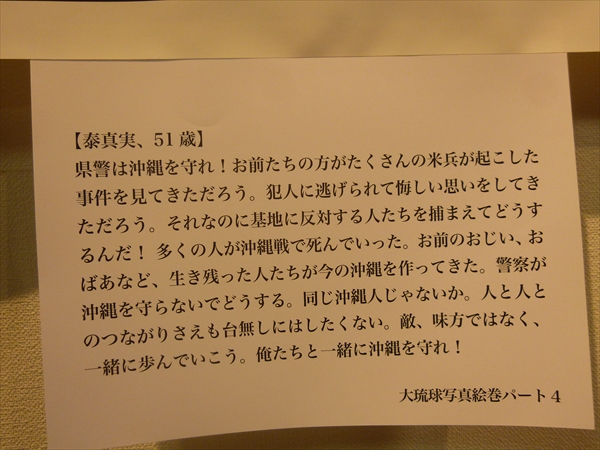 【泰真実、51 歳】
県警は沖縄を守れ！お前たちの方がたくさんの米兵が起こした
事件を見てきただろう。犯人に逃げられて悔しい思いをしてき
ただろう。それなのに基地に反対する人たちを捕まえてどうす
るんだ！ 多くの人が沖縄戦で死んでいった。お前のおじい、お
ばあなど、生き残った人たちが今の沖縄を作ってきた。警察が
沖縄を守らないでどうする。同じ沖縄人じゃないか。人と人と
のつながりさえも台無しにはしたくない。敵、味方ではなく、
一緒に歩んでいこう。俺たちと一緒に沖縄を守れ！
大琉球写真絵巻パート４